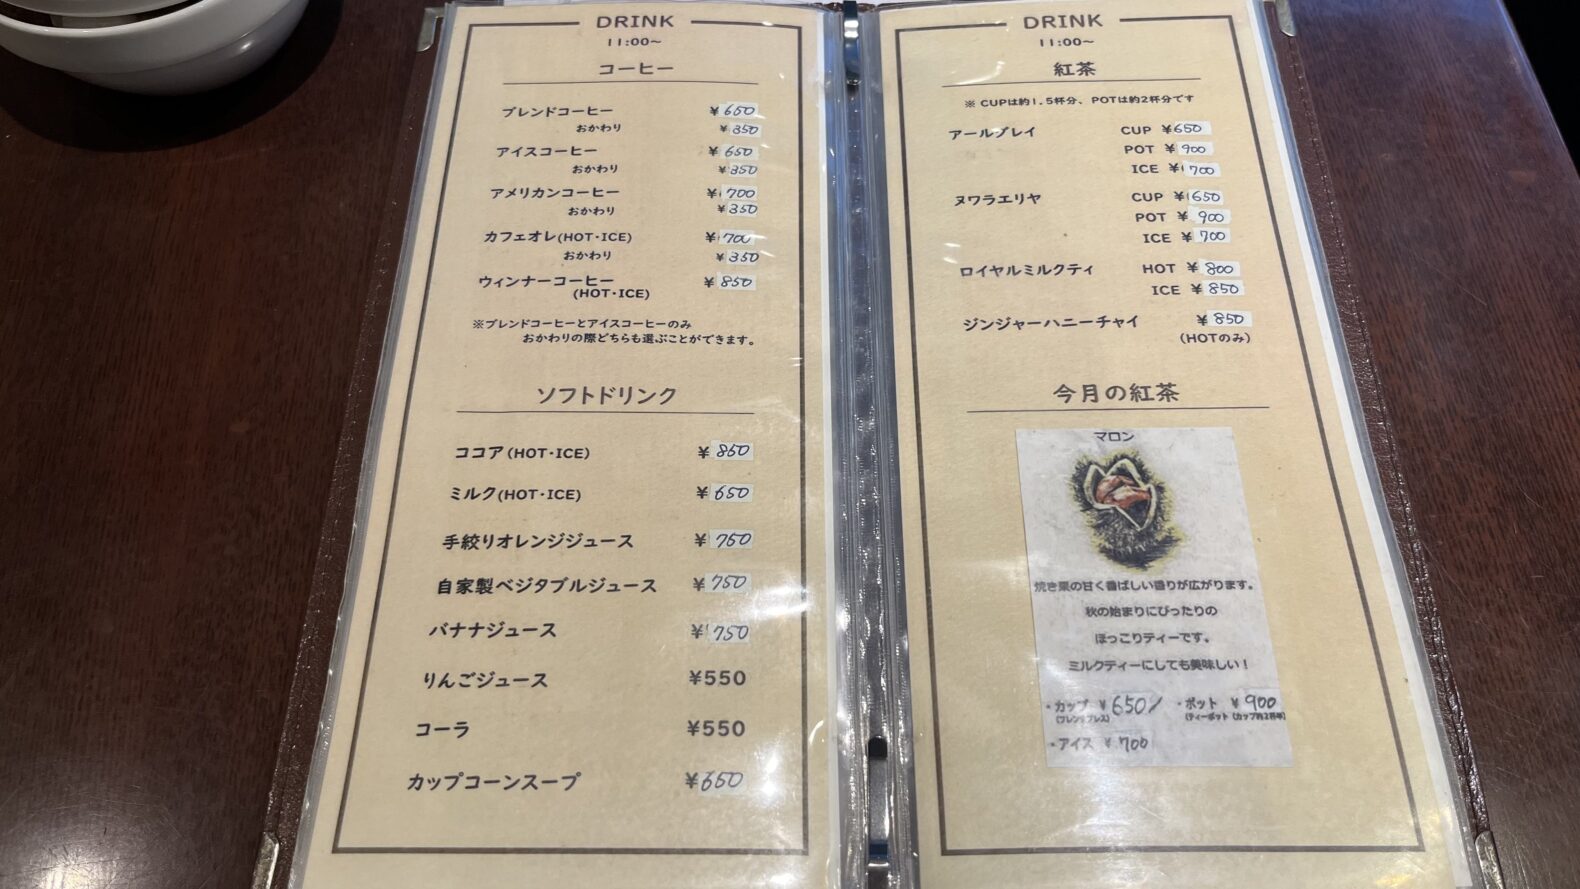 DRINK
11:00~
コーヒー
ブレンドコーヒー ¥650
おかわり ¥350
アイスコーヒー ¥650
おかわり ¥350
アメリカンコーヒー ¥700
おかわり ¥350
カフェオレ(HOT・ICE) ¥700
おかわり ¥350
ウィンナーコーヒー ¥850
(HOT・ICE)
※ブレンドコーヒーとアイスコーヒーのみ
おかわりの際どちらも選ぶことができます。
ソフトドリンク
ココア(HOT・ICE) ¥850
ミルク(HOT・ICE) ¥650
手絞りオレンジジュース ¥750
自家製ベジタブルジュース ¥750
バナナジュース ¥750
りんごジュース ¥550
コーラ ¥550
カップコーンスープ ¥650
DRINK
11:00~
紅茶
※ CUPは約1.5杯分、POTは約2杯分です
アールグレイ CUP ¥650
POT ¥900
ICE ¥700
ヌワラエリヤ CUP ¥650
POT ¥900
ICE ¥700
ロイヤルミルクティ HOT ¥800
ICE ¥850
ジンジャーハニーチャイ ¥850
(HOTのみ)
今月の紅茶
マロン
焼き栗の甘く香ばしい香りが広がります。
秋の始まりにぴったりの
ほっこりティーです。
ミルクティーにしても美味しい!
・カップ ¥650 ・ポット ¥900
(フレンチプレス) (ティーポット (カップ約2杯半)
・アイス ¥700